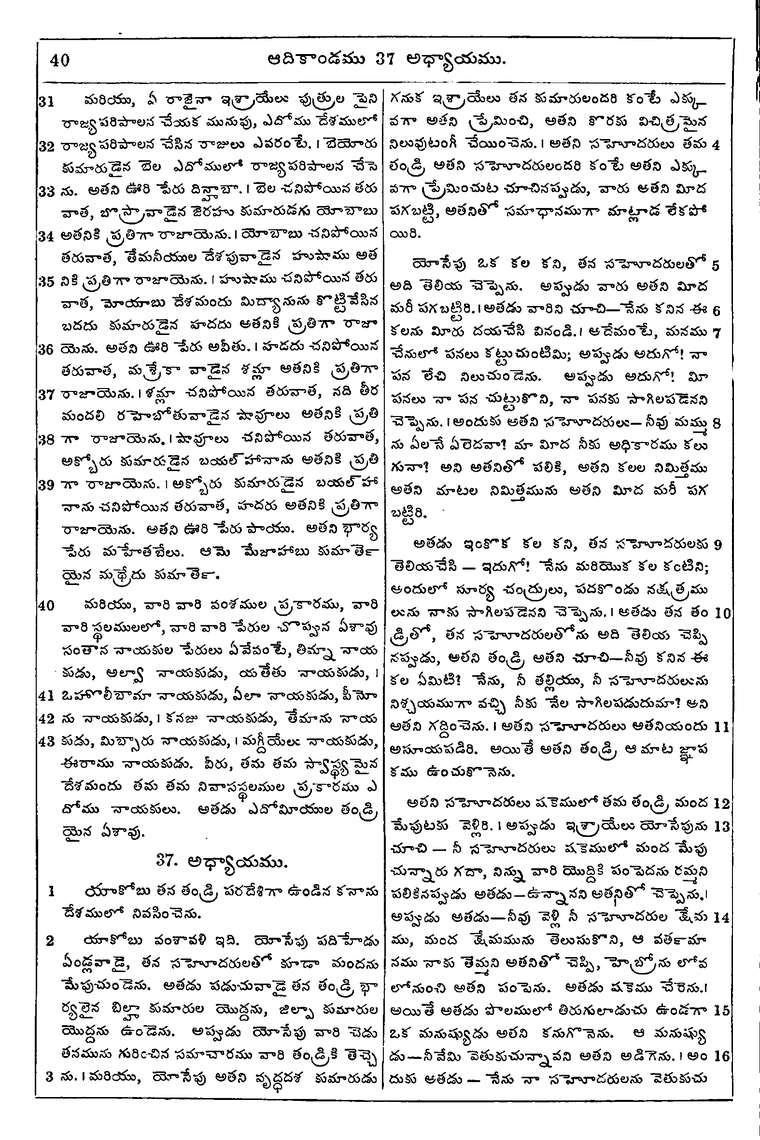 40 ఆదికాండము 37 అధ్యాయము.
31 మరియు, ఏ రాజైనా ఇశ్రాయేలు పుత్రుల పైని
రాజ్యపరిపాలన చేయక మునుపు, ఎదోము దేశములో
32 రాజ్యపరిపాలన చేసిన రాజులు ఎవరంటే. । బెయోరు
కుమారుడైన బెల ఎదోములో రాజ్యపరిపాలన చేసె
33 ను. అతని ఊరి పేరు దిన్హాబా. । బెల చనిపోయిన తరు
వాత, బొస్రావాడైన జెరహు కుమారుడగు యోబాబు
34 అతనికి ప్రతిగా రాజాయెను. । యోబాబు చనిపోయిన
తరువాత, తేమనీయుల దేశపువాడైన హుషాము అత
35 నికి ప్రతిగా రాజాయెను. । హుషాము చనిపోయిన తరు
వాత, మోయాబు దేశమందు మిద్యానును కొట్టివేసిన
బదదు కుమారుడైన హదదు అతనికి ప్రతిగా రాజా
36 యెను. అతని ఊరి పేరు అవీతు. । హదదు చనిపోయిన
తరువాత, మశ్రేకా వాడైన శమ్లా అతనికి ప్రతిగా
37 రాజాయెను. । శమ్లా చనిపోయిన తరువాత, నది తీర
మందలి రహెబోతువాడైన షావూలు అతనికి ప్రతి
38 గా రాజాయెను. । షావూలు చనిపోయిన తరువాత,
అక్బోరు కుమారుడైన బయల్ హానాను అతనికి ప్రతి
39 గా రాజాయెను. । అక్బోరు కుమారుడైన బయల్ హా
నాను చనిపోయిన తరువాత, హదరు అతనికి ప్రతిగా
రాజాయెను. అతని ఊరి పేరు పాయు. అతని భార్య
పేరు మహేతబేలు. ఆమె మేజాహాబు కుమాతె౯
యైన మథ్రేదు కుమాతె౯.
40 మరియు, వారి వారి వంశముల ప్రకారము, వారి
వారి స్థలములలో, వారి వారి పేరుల చొప్పున ఏశావు
సంతాన నాయకుల పేరులు ఏవేవంటే, తిమ్నా నాయ
కుడు, అల్వా నాయకుడు, యతేతు నాయకుడు, ।
41 ఒహొలీబామా నాయకుడు, ఏలా నాయకుడు, పీనో
42 ను నాయకుడు, । కనజు నాయకుడు, తేమాను నాయ
43 కుడు, మిబ్సారు నాయకుడు, । మగ్దీయేలు నాయకుడు,
ఈరాము నాయకుడు. వీరు, తమ తమ స్వాస్థ్యమైన
దేశమందు తమ తమ నివాసస్థలముల ప్రకారము ఎ
దోము నాయకులు. అతడు ఎదోమీయుల తండ్రి
యైన ఏశావు.
37. అధ్యాయము.
1 యాకోబు తన తండ్రి పరదేశిగా ఉండిన కనాను
దేశములో నివసించెను.
2 యాకోబు వంశావళి ఇది. యోసేపు పదిహేడు
ఏండ్లవాడై, తన సహోదరులతో కూడా మందను
మేపుచుండెను. అతడు పడుచువాడై తన తండ్రి భా
ర్యలైన బిల్హా కుమారుల యొద్దను, జిల్పా కుమారుల
యొద్దను ఉండెను. అప్పుడు యోసేపు వారి చెడు
తనమును గురించిన సమాచారము వారి తండ్రికి తెచ్చె
3 ను. । మరియు, యోసేపు అతని వృద్ధదశ కుమారుడు
గనుక ఇశ్రాయేలు తన కుమారులందరి కంటే ఎక్కు
వగా అతని ప్రేమించి, అతని కొరకు విచిత్రమైన
నిలువుటంగీ చేయించెను. । అతని సహోదరులు తమ 4
తండ్రి అతని సహోదరులందరి కంటే అతని ఎక్కు
వగా ప్రేమించుట చూచినప్పుడు, వారు అతని మీద
పగబట్టి, అతనితో సమాధానముగా మాట్లాడ లేకపో
యిరి.
యోసేపు ఒక కల కని, తన సహోదరులతో 5
అది తెలియ చెప్పెను. అప్పుడు వారు అతని మీద
మరీ పగబట్టిరి. । అతడు వారిని చూచి—నేను కనిన ఈ 6
కలను మీరు దయచేసి వినండి. । అదేమంటే, మనము 7
చేనులో పనలు కట్టుచుంటిమి; అప్పుడు అదుగో! నా
పన లేచి నిలుచుండెను. అప్పుడు అదుగో! మీ
పనలు నా పన చుట్టుకొని, నా పనకు సాగిలపడెనని
చెప్పెను. । అందుకు అతని సహోదరులు— నీవు మమ్ము 8
ను ఏలనే ఏలెదవా? మా మీద నీకు అధికారము కలు
గునా? అని అతనితో పలికి, అతని కలల నిమిత్తము
అతని మాటల నిమిత్తమును అతని మీద మరీ పగ
బట్టిరి.
అతడు ఇంకొక కల కని, తన సహోదరులకు 9
తెలియచేసి — ఇదుగో! నేను మరియొక కల కంటిని;
అందులో సూర్య చంద్రులు, పదకొండు నక్షత్రము
లును నాకు సాగిలపడెనని చెప్పెను. । అతడు తన తం 10
డ్రితో, తన సహోదరులతోను అది తెలియ చెప్పి
నప్పుడు, అతని తండ్రి అతని చూచి—నీవు కనిన ఈ
కల ఏమిటి? నేను, నీ తల్లియు, నీ సహోదరులును
నిశ్చయముగా వచ్చి నీకు నేల సాగిలపడుదుమా? అని
అతని గద్దించెను. । అతని సహోదరులు అతనియందు 11
అసూయపడిరి. అయితే అతని తండ్రి ఆ మాట జ్ఞాప
కము ఉంచుకొనెను.
అతని సహోదరులు షకెములో తమ తండ్రి మంద 12
మేపుటకు వెళ్లిరి. । అప్పుడు ఇశ్రాయేలు యోసేపును 13
చూచి — నీ సహోదరులు షకెములో మంద మేపు
చున్నారు గదా, నిన్ను వారి యొద్దికి పంపెదను రమ్మని
పలికినప్పుడు అతడు—ఉన్నానని అతనితో చెప్పెను. ।
అప్పుడు అతడు—నీవు వెళ్లి నీ సహోదరుల క్షేమ 14
ము, మంద క్షేమమును తెలుసుకొని, ఆ వత౯మా
నము నాకు తెమ్మని అతనితో చెప్పి, హెబ్రోను లోవ
లోనుంచి అతని పంపెను. అతడు షకెము చేరెను. ।
అయితే అతడు పొలములో తిరుగులాడుచు ఉండగా 15
ఒక మనుష్యుడు అతని కనుగొనెను. ఆ మనుష్యు
డు—నీవేమి వెతుకుచున్నావని అతని అడిగెను. । అం 16
దుకు అతడు — నేను నా సహోదరులను వెతుకుచు